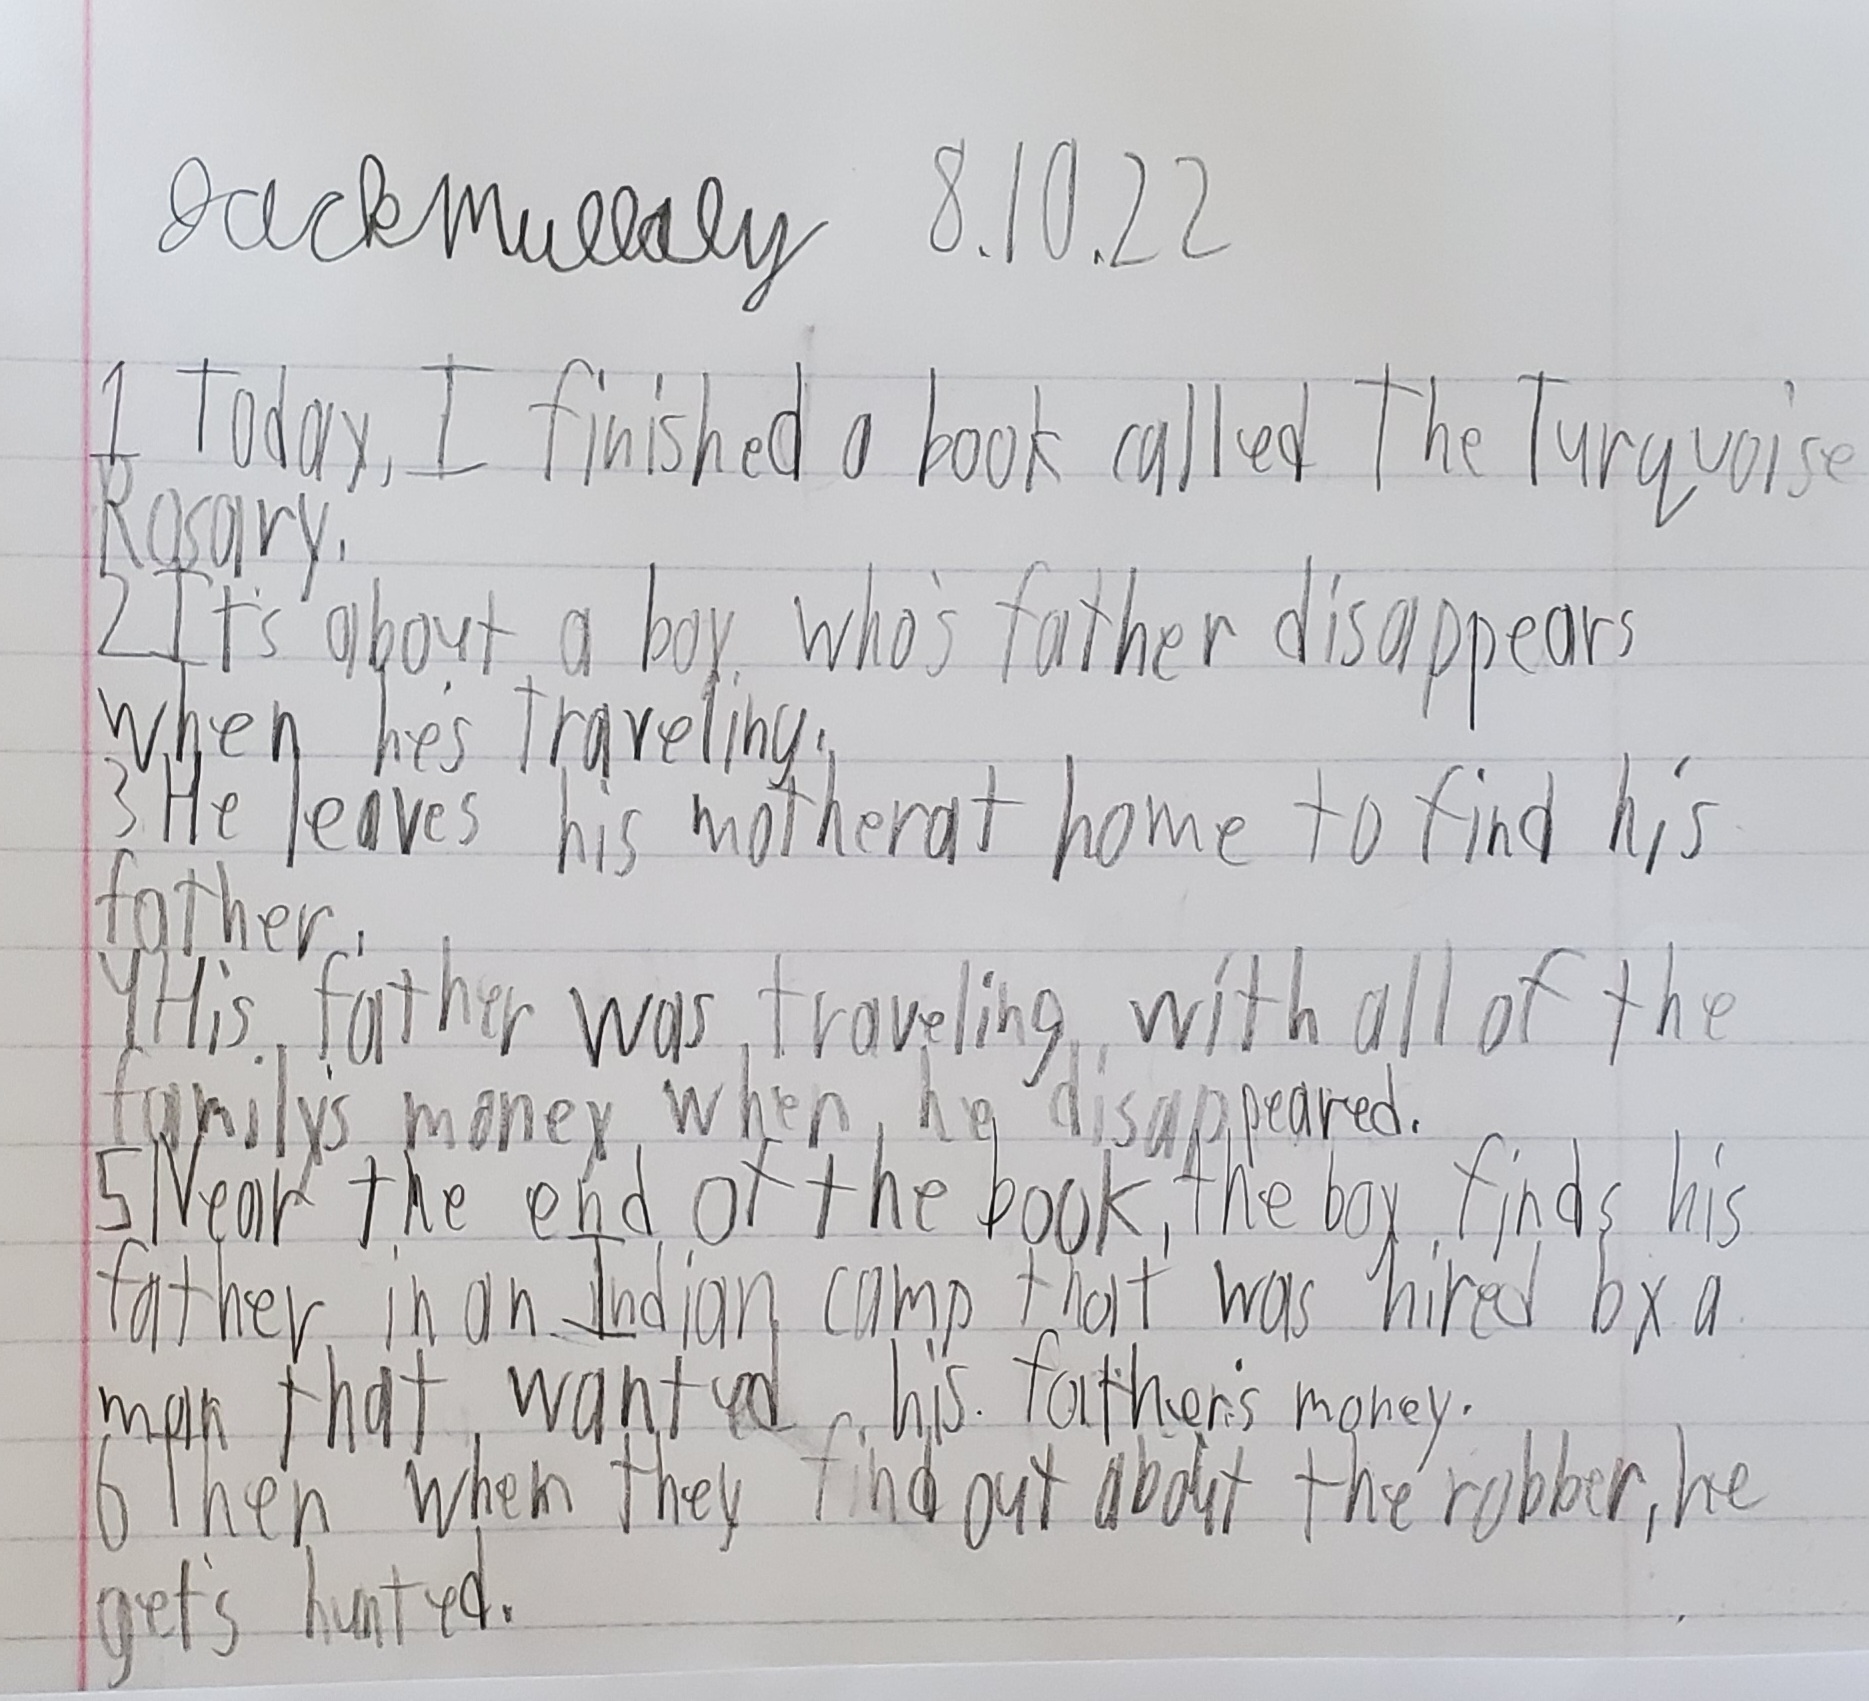 Jack Mullaly 8.10.22
1 Today, I finished a book called The Turquoise
Rosary.
2 It's about a boy who's father disappears
when he's traveling.
3 He leaves his mother at home to find his
father.
4 His father was traveling with all of the
family's money when he disappeared.
5 Near the end of the book, the boy finds his
father in an Indian camp that was hired by a
man that wanted his father's money.
6 Then when they find out about the robber, he
get's hunted.